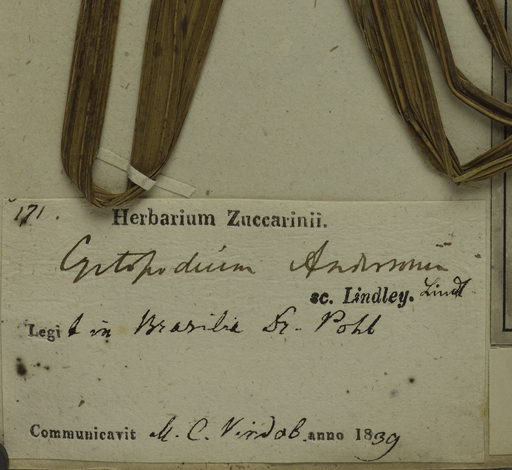 171.
Herbarium Zuccarinii.
Cyrtopodium Andersonii
sc. Lindley. Lindl
Legit in Brasilia Dr. Pohl
Communicavit M. C. Vindob. anno 1839